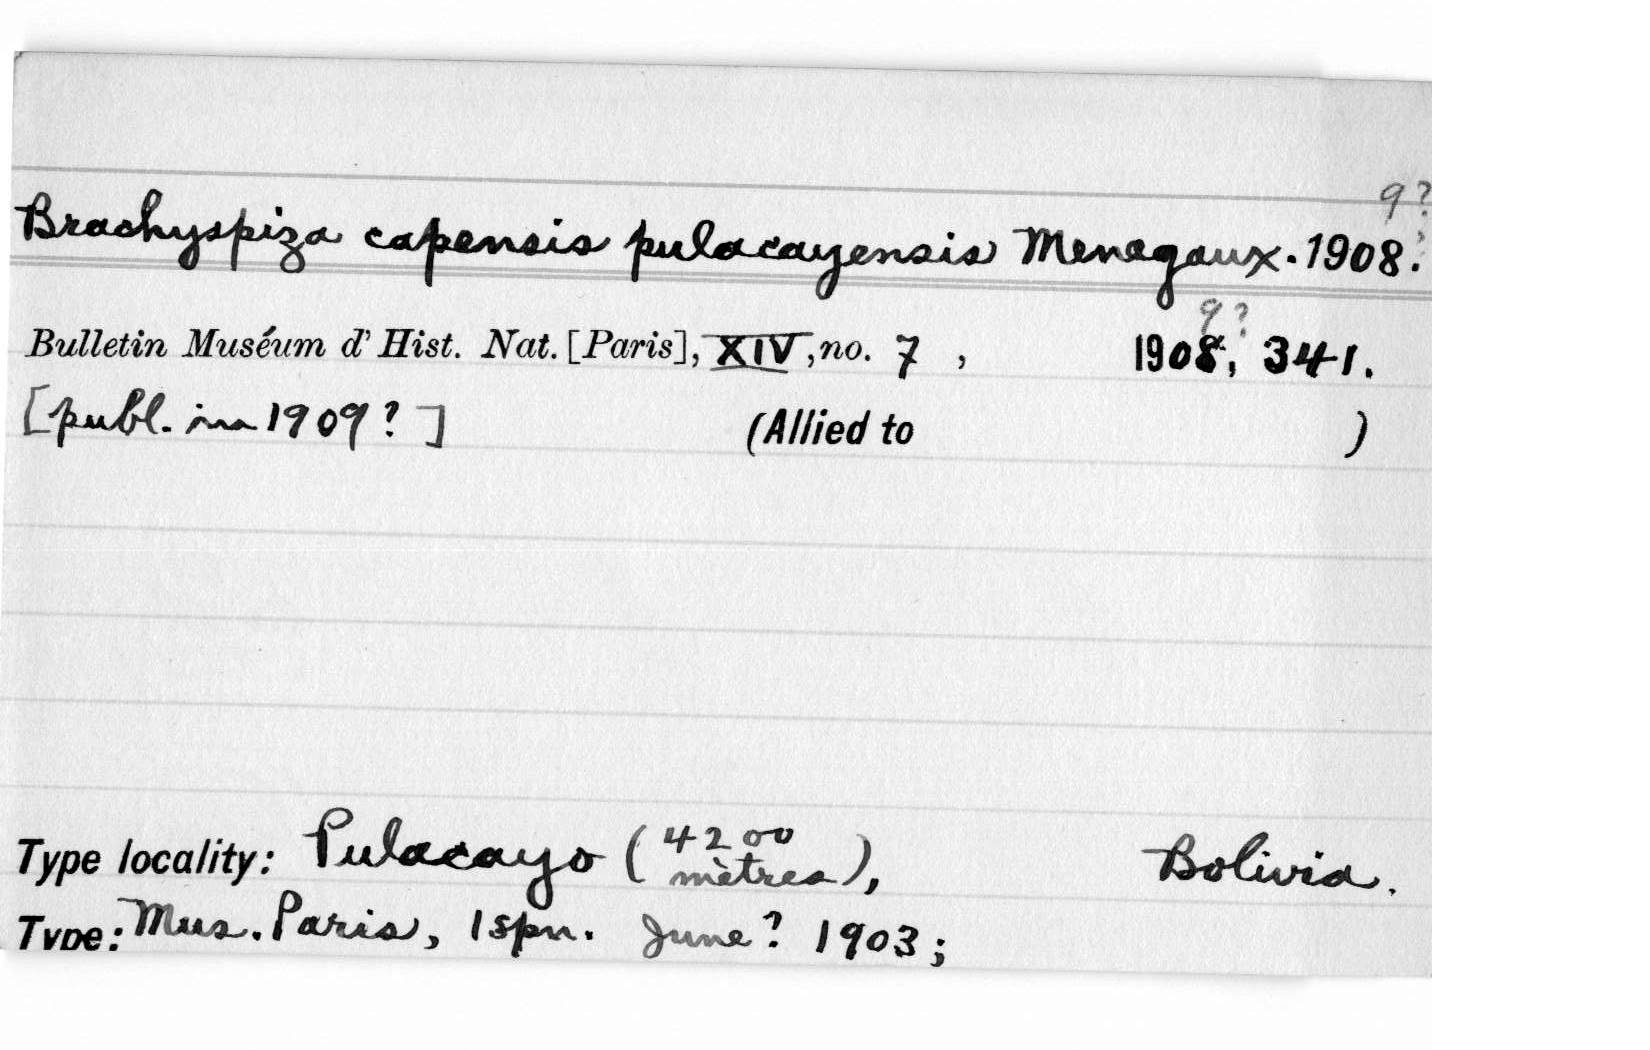 9?
Brachyspiza capensis pulacayensis Menegaux. 1908.
9?
Bulletin Muséum d'Hist. Nat. [Paris], XIV, no. 7 , 1908, 341.
[publ. in 1909?] (Allied to )
Type locality: Pulacayo (4200 mètres), Bolivia.
Type: Mus. Paris, 1 spn. June? 1903;